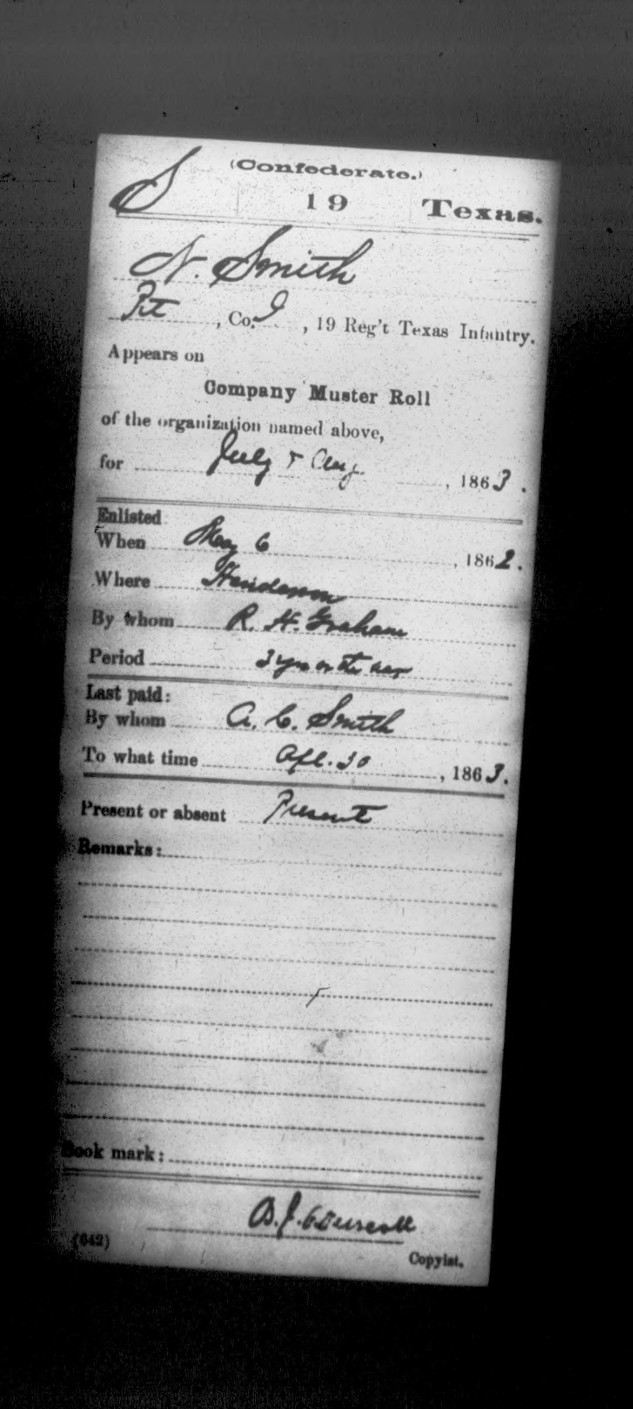 (Confederate.)
S 19 Texas.
N. Smith
Pvt, Co. I, 19 Reg't Texas Infantry.
Appears on
Company Muster Roll
of the organization named above,
for July & Aug, 1863.
Enlisted
When May 6, 1862.
Where Henderson
By whom R. H. Graham
Period 3 yrs or the war
Last paid:
By whom A. C. Smith
To what time Apl. 30, 1863.
Present or absent Present
Remarks:
Book mark:
B. J.
(642) Copyist.